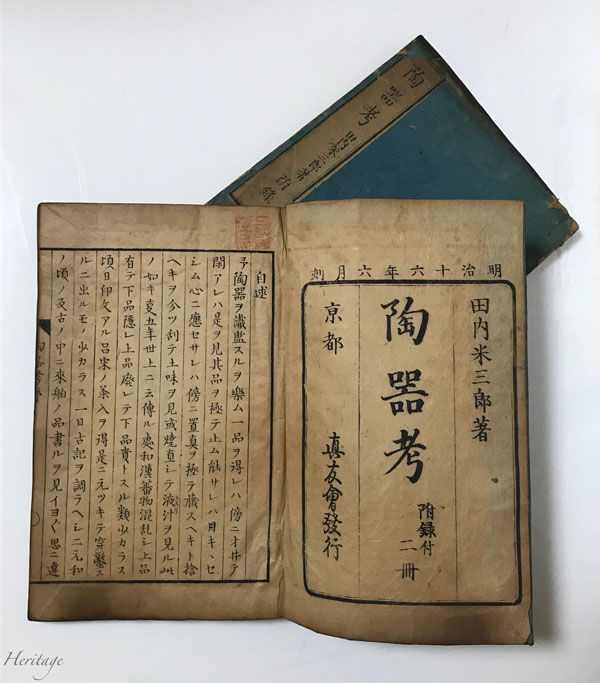 陶器考 田内米三郎著 附錄
明治十六年六月刻
田内米三郎著
陶器考
附録付
二冊
京都
真友會發行
自述
予陶器ヲ識鑑スルヲ樂ム一品ヲ得レハ傍ニオ井テ
閑アレハ是ヲ見其品ヲ極テ止ム能サレハ目キヽセ
シム心ニ應セサレハ傍ニ置真ヲ極テ蔵スヘキト捨
ヘキヲ分ツ刮テ土味ヲ見或焼直シテ液汁ヲ見ル此
ノ如キ夏五年世上ニ云傳ル處和漢蕃物混乱シ上品
有テ下品隠レ上品廃レテ下品貴トスル類少カラス
頃日印文アル呂宋ノ茶入ヲ得是ニ元ツキテ穿鑿ス
ルニ出ルモノ少カラス一日古記ヲ調ラヘシニ元和
ノ頃ノ反古ノ中ニ來舶ノ品書ルヲ見イヨ〱思ニ違
Heritage